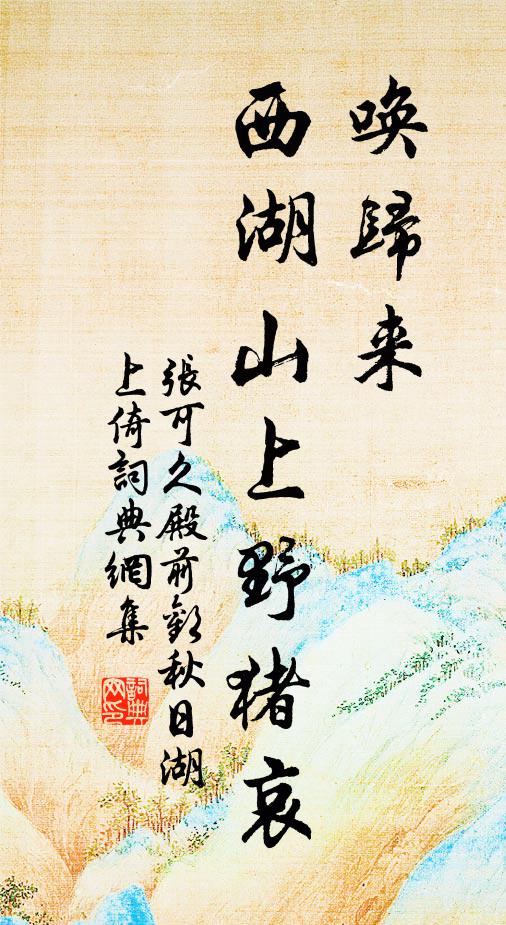 唤歸来
西湖山上野猪哀
張可久殿前歡秋日湖
上倚詞典網集
詞典
网印